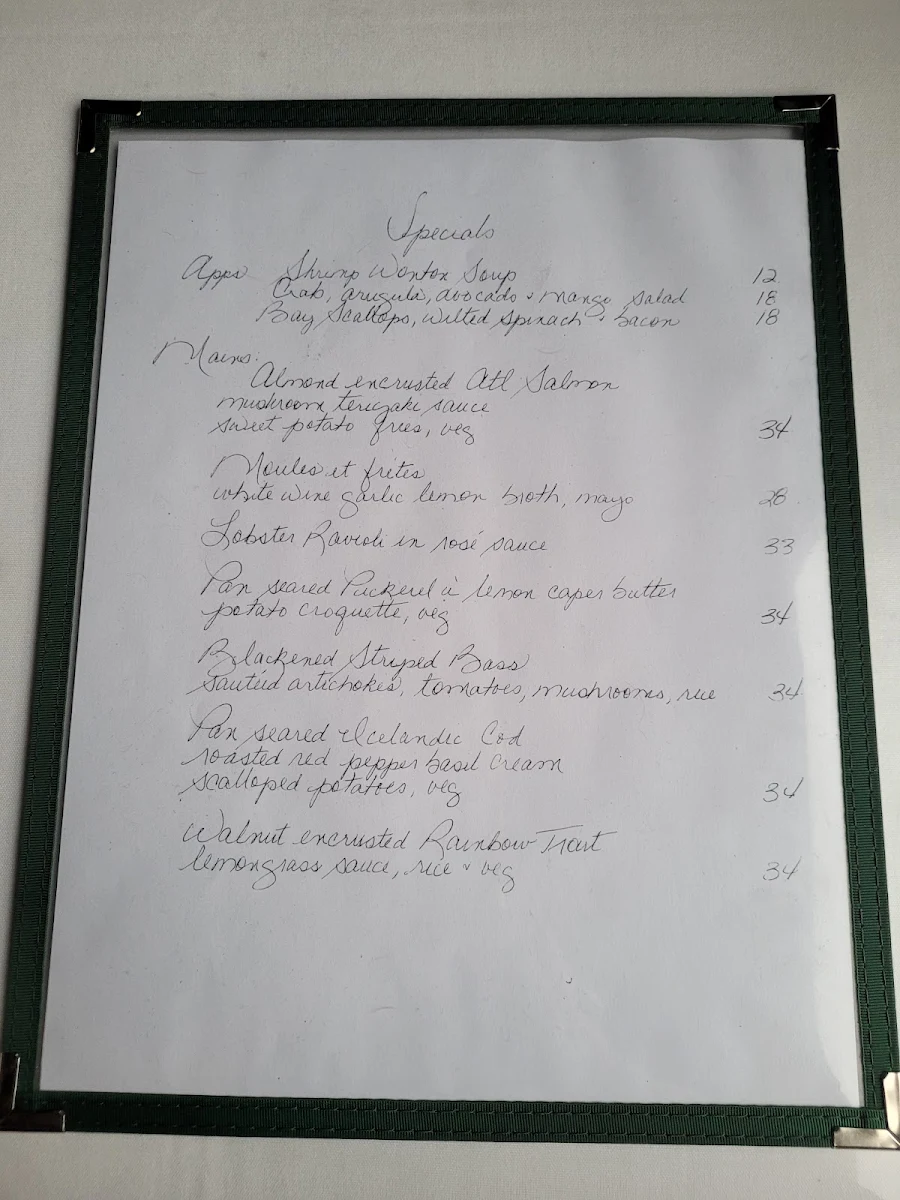 Specials
Apps Shrimp Wonton Soup 12
Crab, arugula, avocado & mango salad 18
Bay Scallops, wilted spinach & bacon 18
Mains:
Almond encrusted Atl Salmon
mushroom teriyaki sauce
sweet potato fries, veg 34
Moules et frites
white wine garlic lemon broth, mayo 28
Lobster Ravioli in rosé sauce 33
Pan seared Pickerel à lemon caper butter
potato croquette, veg 34
Blackened Striped Bass
sautéed artichokes, tomatoes, mushrooms, rice 34
Pan seared Icelandic Cod
roasted red pepper basil cream
scalloped potatoes, veg 34
Walnut encrusted Rainbow Trout
lemongrass sauce, rice & veg 34